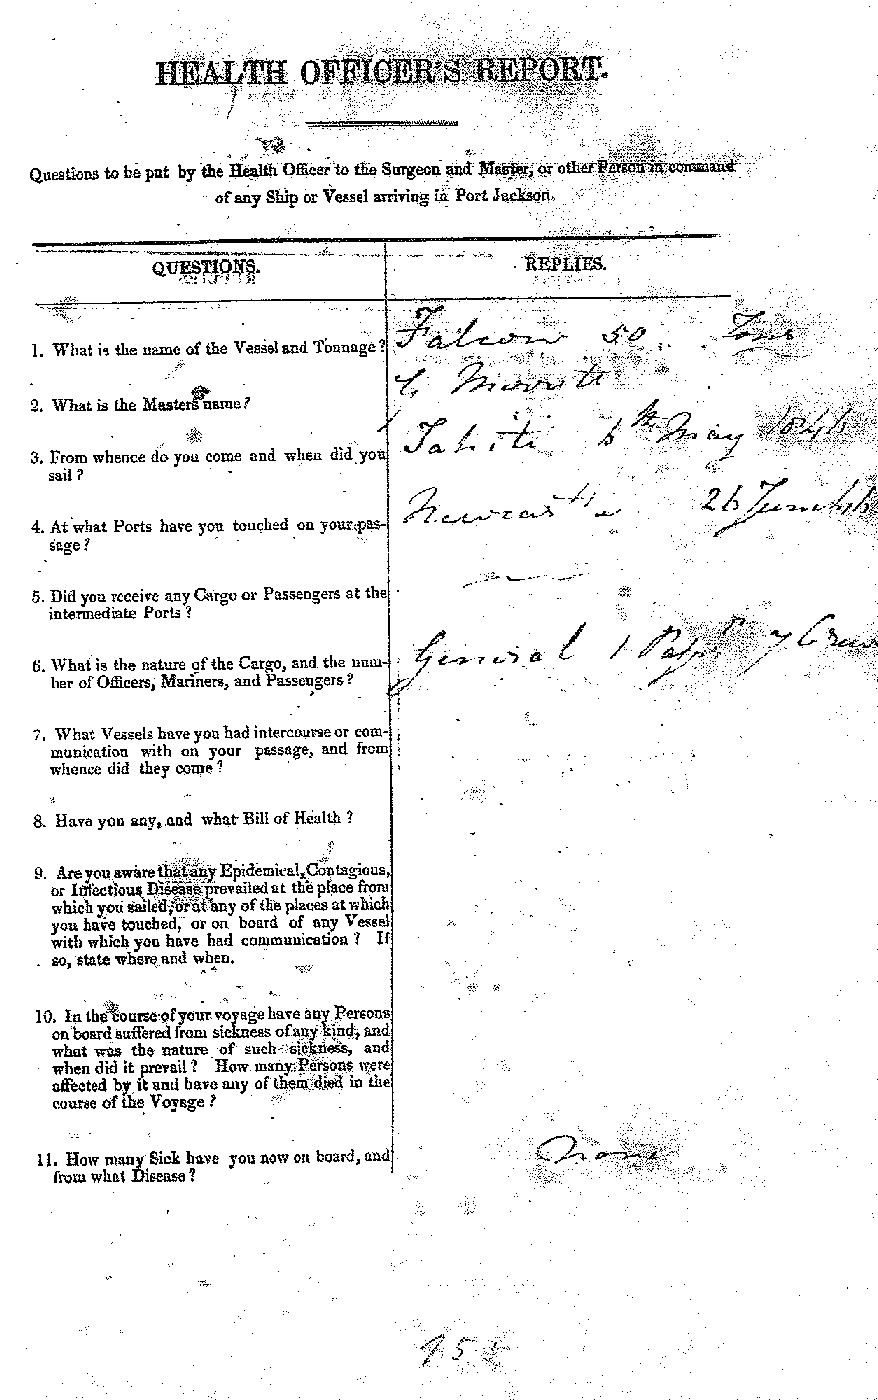 HEALTH OFFICER'S REPORT.
Questions to be put by the Health Officer to the Surgeon and Master, or other Person in command
of any Ship or Vessel arriving in Port Jackson.
QUESTIONS. REPLIES.
1. What is the name of the Vessel and Tonnage? Falcon 50 Tons
2. What is the Masters name?
3. From whence do you come and when did you Tahiti May
sail?
4. At what Ports have you touched on your pas- Newcastle 26 June
sage?
5. Did you receive any Cargo or Passengers at the
intermediate Ports?
6. What is the nature of the Cargo, and the num- General 1 7 Crew
ber of Officers, Mariners, and Passengers?
7. What Vessels have you had intercourse or com-
munication with on your passage, and from
whence did they come?
8. Have you any, and what Bill of Health?
9. Are you aware that any Epidemical, Contagious,
or Infectious Disease prevailed at the place from
which you sailed, or at any of the places at which
you have touched, or on board of any Vessel
with which you have had communication? If
so, state where and when.
10. In the course of your voyage have any Persons
on board suffered from sickness of any kind, and
what was the nature of such sickness, and
when did it prevail? How many Persons were
affected by it and have any of them died in the
course of the Voyage?
11. How many Sick have you now on board, and None
from what Disease?